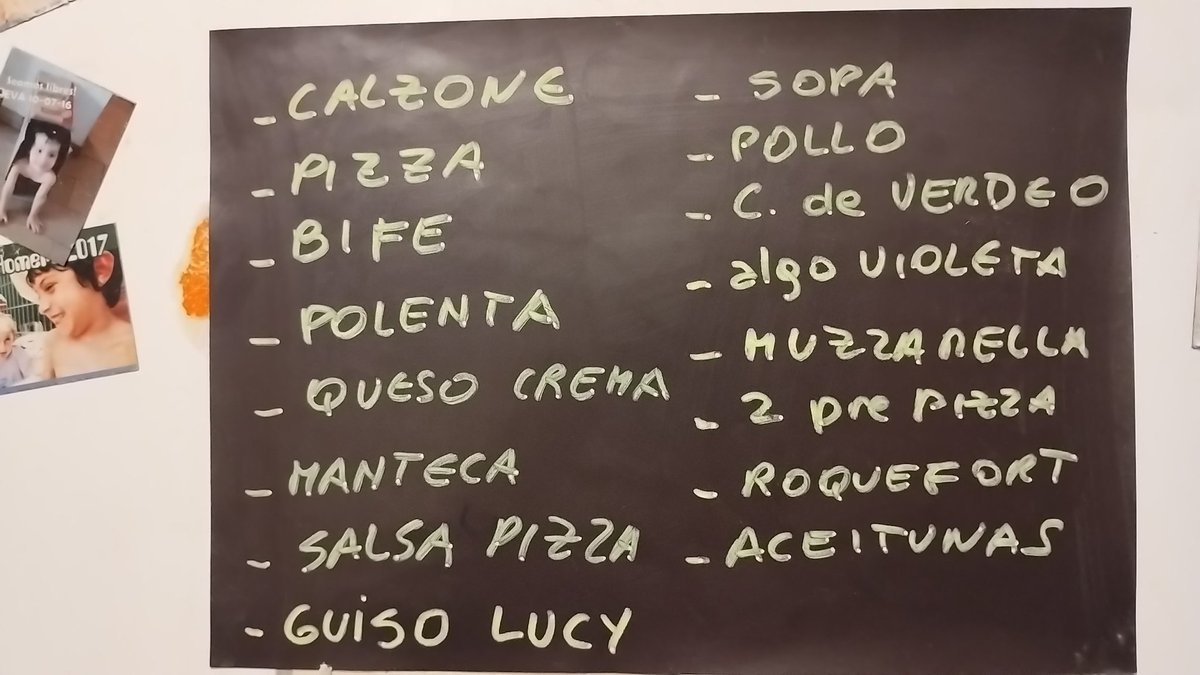 - CALZONE
- PIZZA
- BIFE
- POLENTA
- QUESO CREMA
- MANTECA
- SALSA PIZZA
- GUISO LUCY
- SOPA
- POLLO
- C. de VERDEO
- algo VIOLETA
- MUZZARELLA
- 2 pre PIZZA
- ROQUEFORT
- ACEITUNAS
libres!
EVA 10-07-16
2017